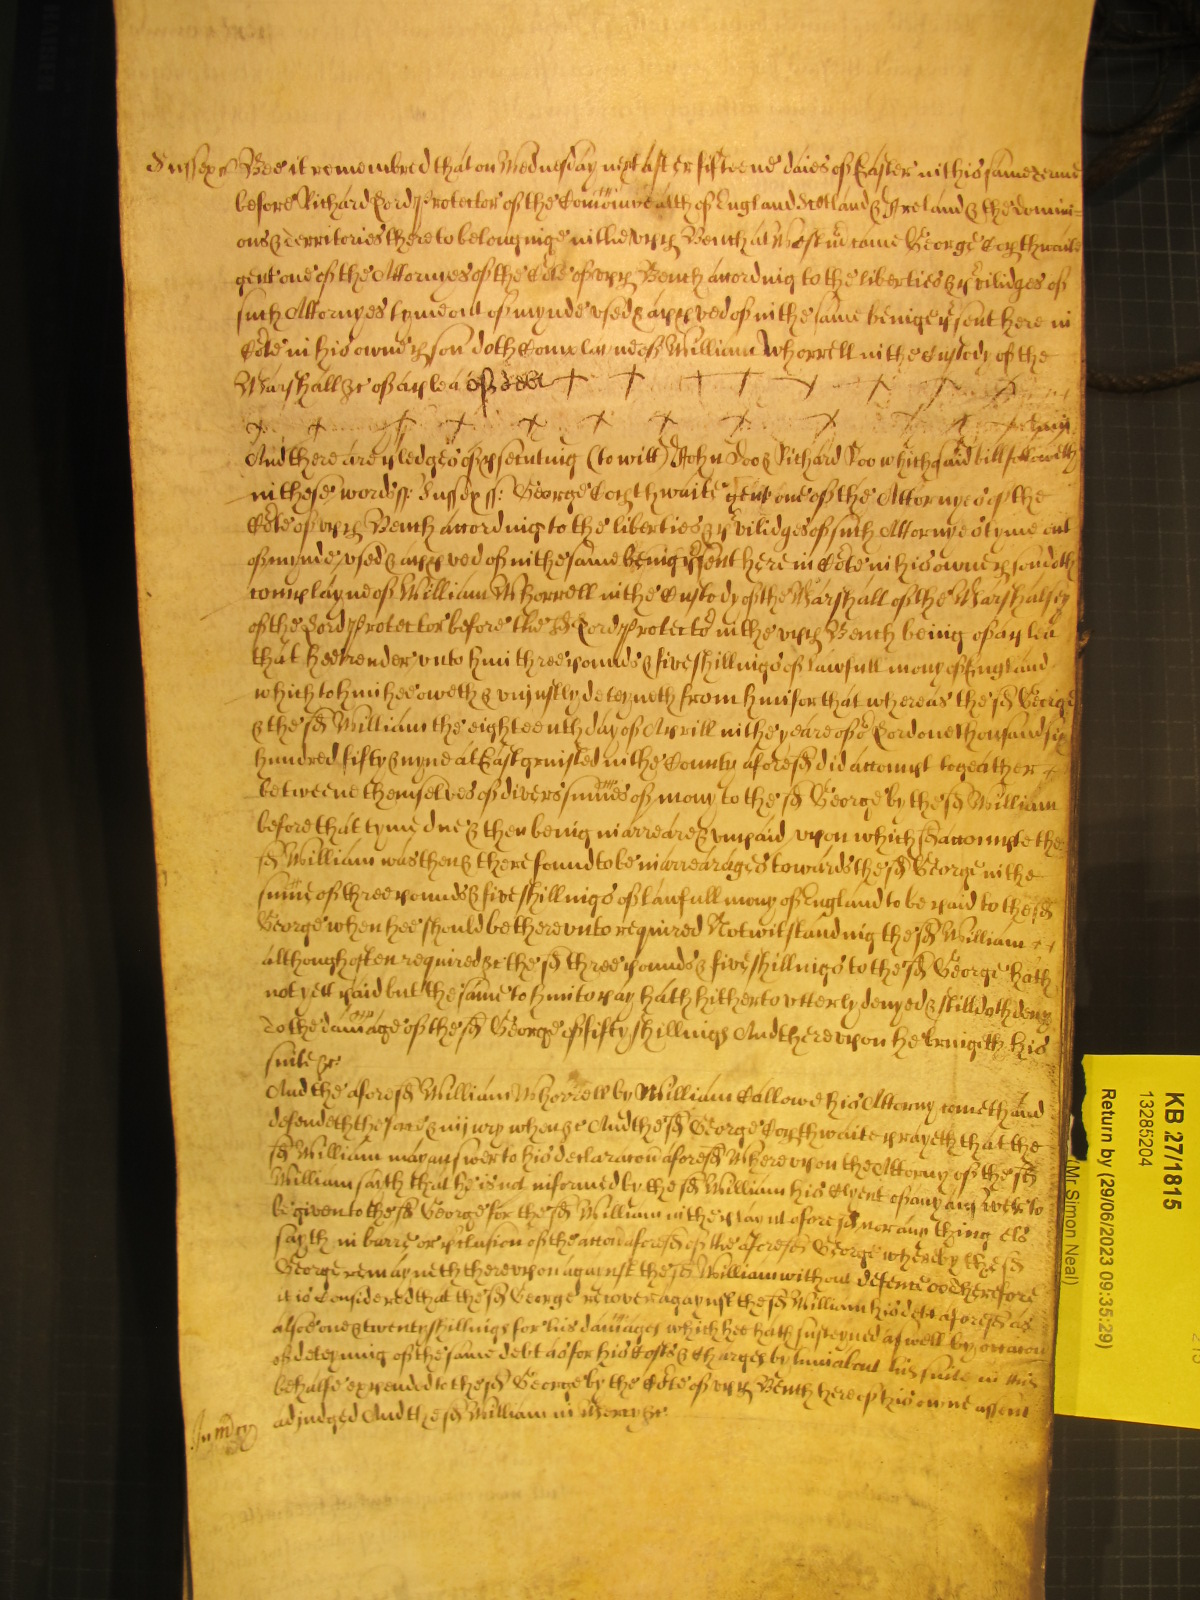 Sussex ss Bee it remembred that on Wednesday next after fifteene daies of Easter in this same terme
before Richard Lord Protector of the Comonwealth of England Scotland & Ireland & the Domini-
ons & Territories thereto belonginge in the upp Bench at Westm came George Copthwaite
gent one of the Attornies of the Co'te of upp Bench according to the liberties & p'vilidges of
such Attornyes tyme out of mynde used & app'ved of in the same beinge p'sent here in
Co'te in his owne p'son doth Complayne of William Whorrell in the Custody of the
Marshall &c of a plea of debt
And there are pledges of p'secuting (to witt) John Doo & Richard Roo which said bill followeth
in these words ss: Sussex ss: George Copthwaite gent one of the Attornyes of the
Co'te of upp Bench according to the liberties & p'vilidges of such Attornyes tyme out
of mynde used & app'ved of in the same being p'sent here in Co'te in his owne p'son doth
complayne of William Whorrell in the Custody of the Marshall of the Marshalsey
of the Lord Protector before the sd Lord Protector in the upp Bench being of a plea
that hee render unto him three pounds & five shillings of lawfull mony of England
which to him hee oweth & uniustly deteyneth from him for that whereas the sd George
& the sd William the eighteenth day of Aprill in the yeare of o' Lord one thousand six
hundred fifty & nyne at East grinsted in the County aforesd did accompt togeather
betweene themselves of divers summes of mony to the sd George by the sd William
before that tyme due & then being in arreare & unpaid upon which sd accompte the
sd William was then & there found to be in arrearages towards the sd George in the
summe of three pounds & five shillings of lawfull mony of England to be paid to the sd
George when hee should be thereunto required Notwithstanding the sd William
although often required &c the sd three pounds & five shillings to the sd George hath
not yett paid but the same to him to pay hath hitherto utterly denyed & still doth deny
To the damage of the sd George of fifty shillings And thereupon he bringeth his
suite &c
And the aforesd William Whorrell by William Callowe his Attorny cometh and
defendeth the force & iniury when &c And the sd George Copthwaite prayeth that the
sd William may answer to his declaracon aforesd Whereupon the Attorny of the sd
William saith that he is not informed by the sd William his Clyent of any answere to
be given to the sd George for the sd William in the playnt aforesd nor any thing els
sayth in barre or p'clusion of the accon aforesd of the aforesd George whereby the sd
George remayneth thereupon against the sd William without defence Therefore
it is Considered that the sd George recover agaynst the sd William his debt aforesd as
alsoe one & twenty shillings for his damages which hee hath susteyned aswell by occacon
of deteyning of the same debt as for his Costs & Charges by him about his suite in this
behalfe expended to the sd George by the Co'te of upp Bench here of his owne assent
adjudged And the sd William in Mercy &c
In m'cy
KB 27/1815
13285204
Return by (29/06/2023 09:35:29)
(Mr Simon Neal)